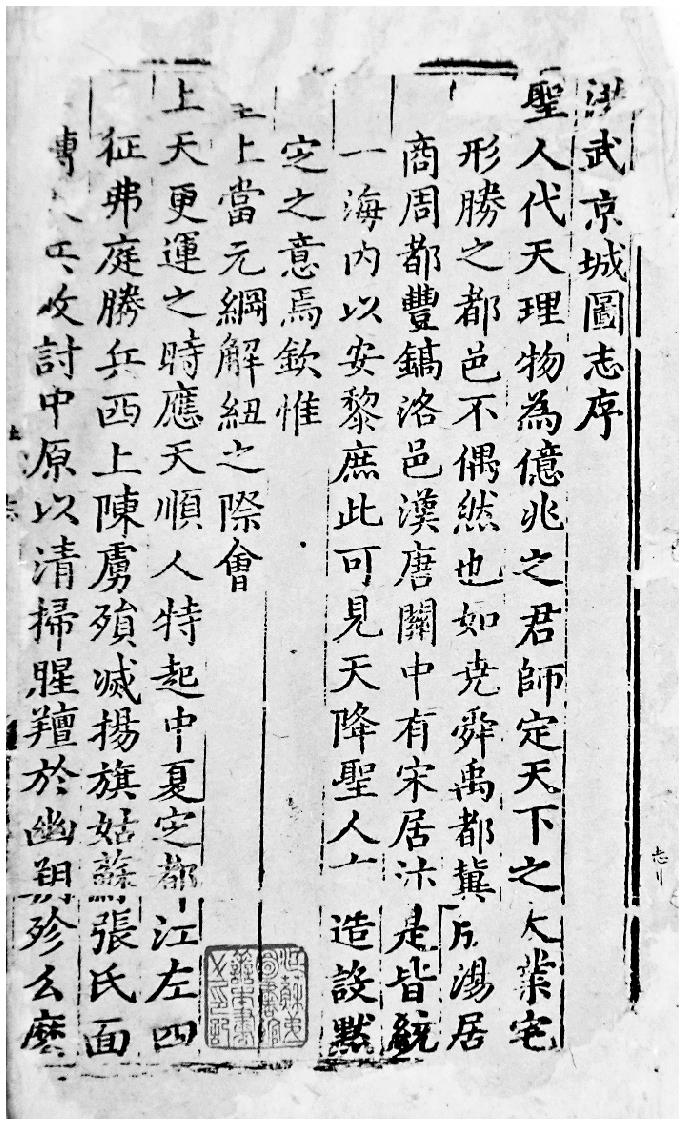 洪武京城圖志序
聖人代天理物為億兆之君師定天下之大業宅
形勝之都邑不偶然也如堯舜禹都冀方湯居
商周都豐鎬洛邑漢唐關中有宋居汴是皆統
一海內以安黎庶此可見天降聖人造設黙
定之意焉欽惟
上當元綱解紐之際會
上天更運之時應天順人特起中夏定都江左四
征弗庭勝兵西上陳虜殞滅揚旗姑蘇張氏面
縛攻討中原以清掃腥羶於幽朔殄么麼